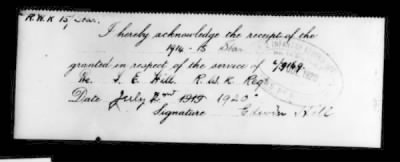 R.W.K 15 Star.
I hereby acknowledge the receipt of the
1914 - 15 Star
granted in respect of the service of
E. Hill. R.W.K Regt
Date July 2nd 1919 1920
Signature Edwin Hill